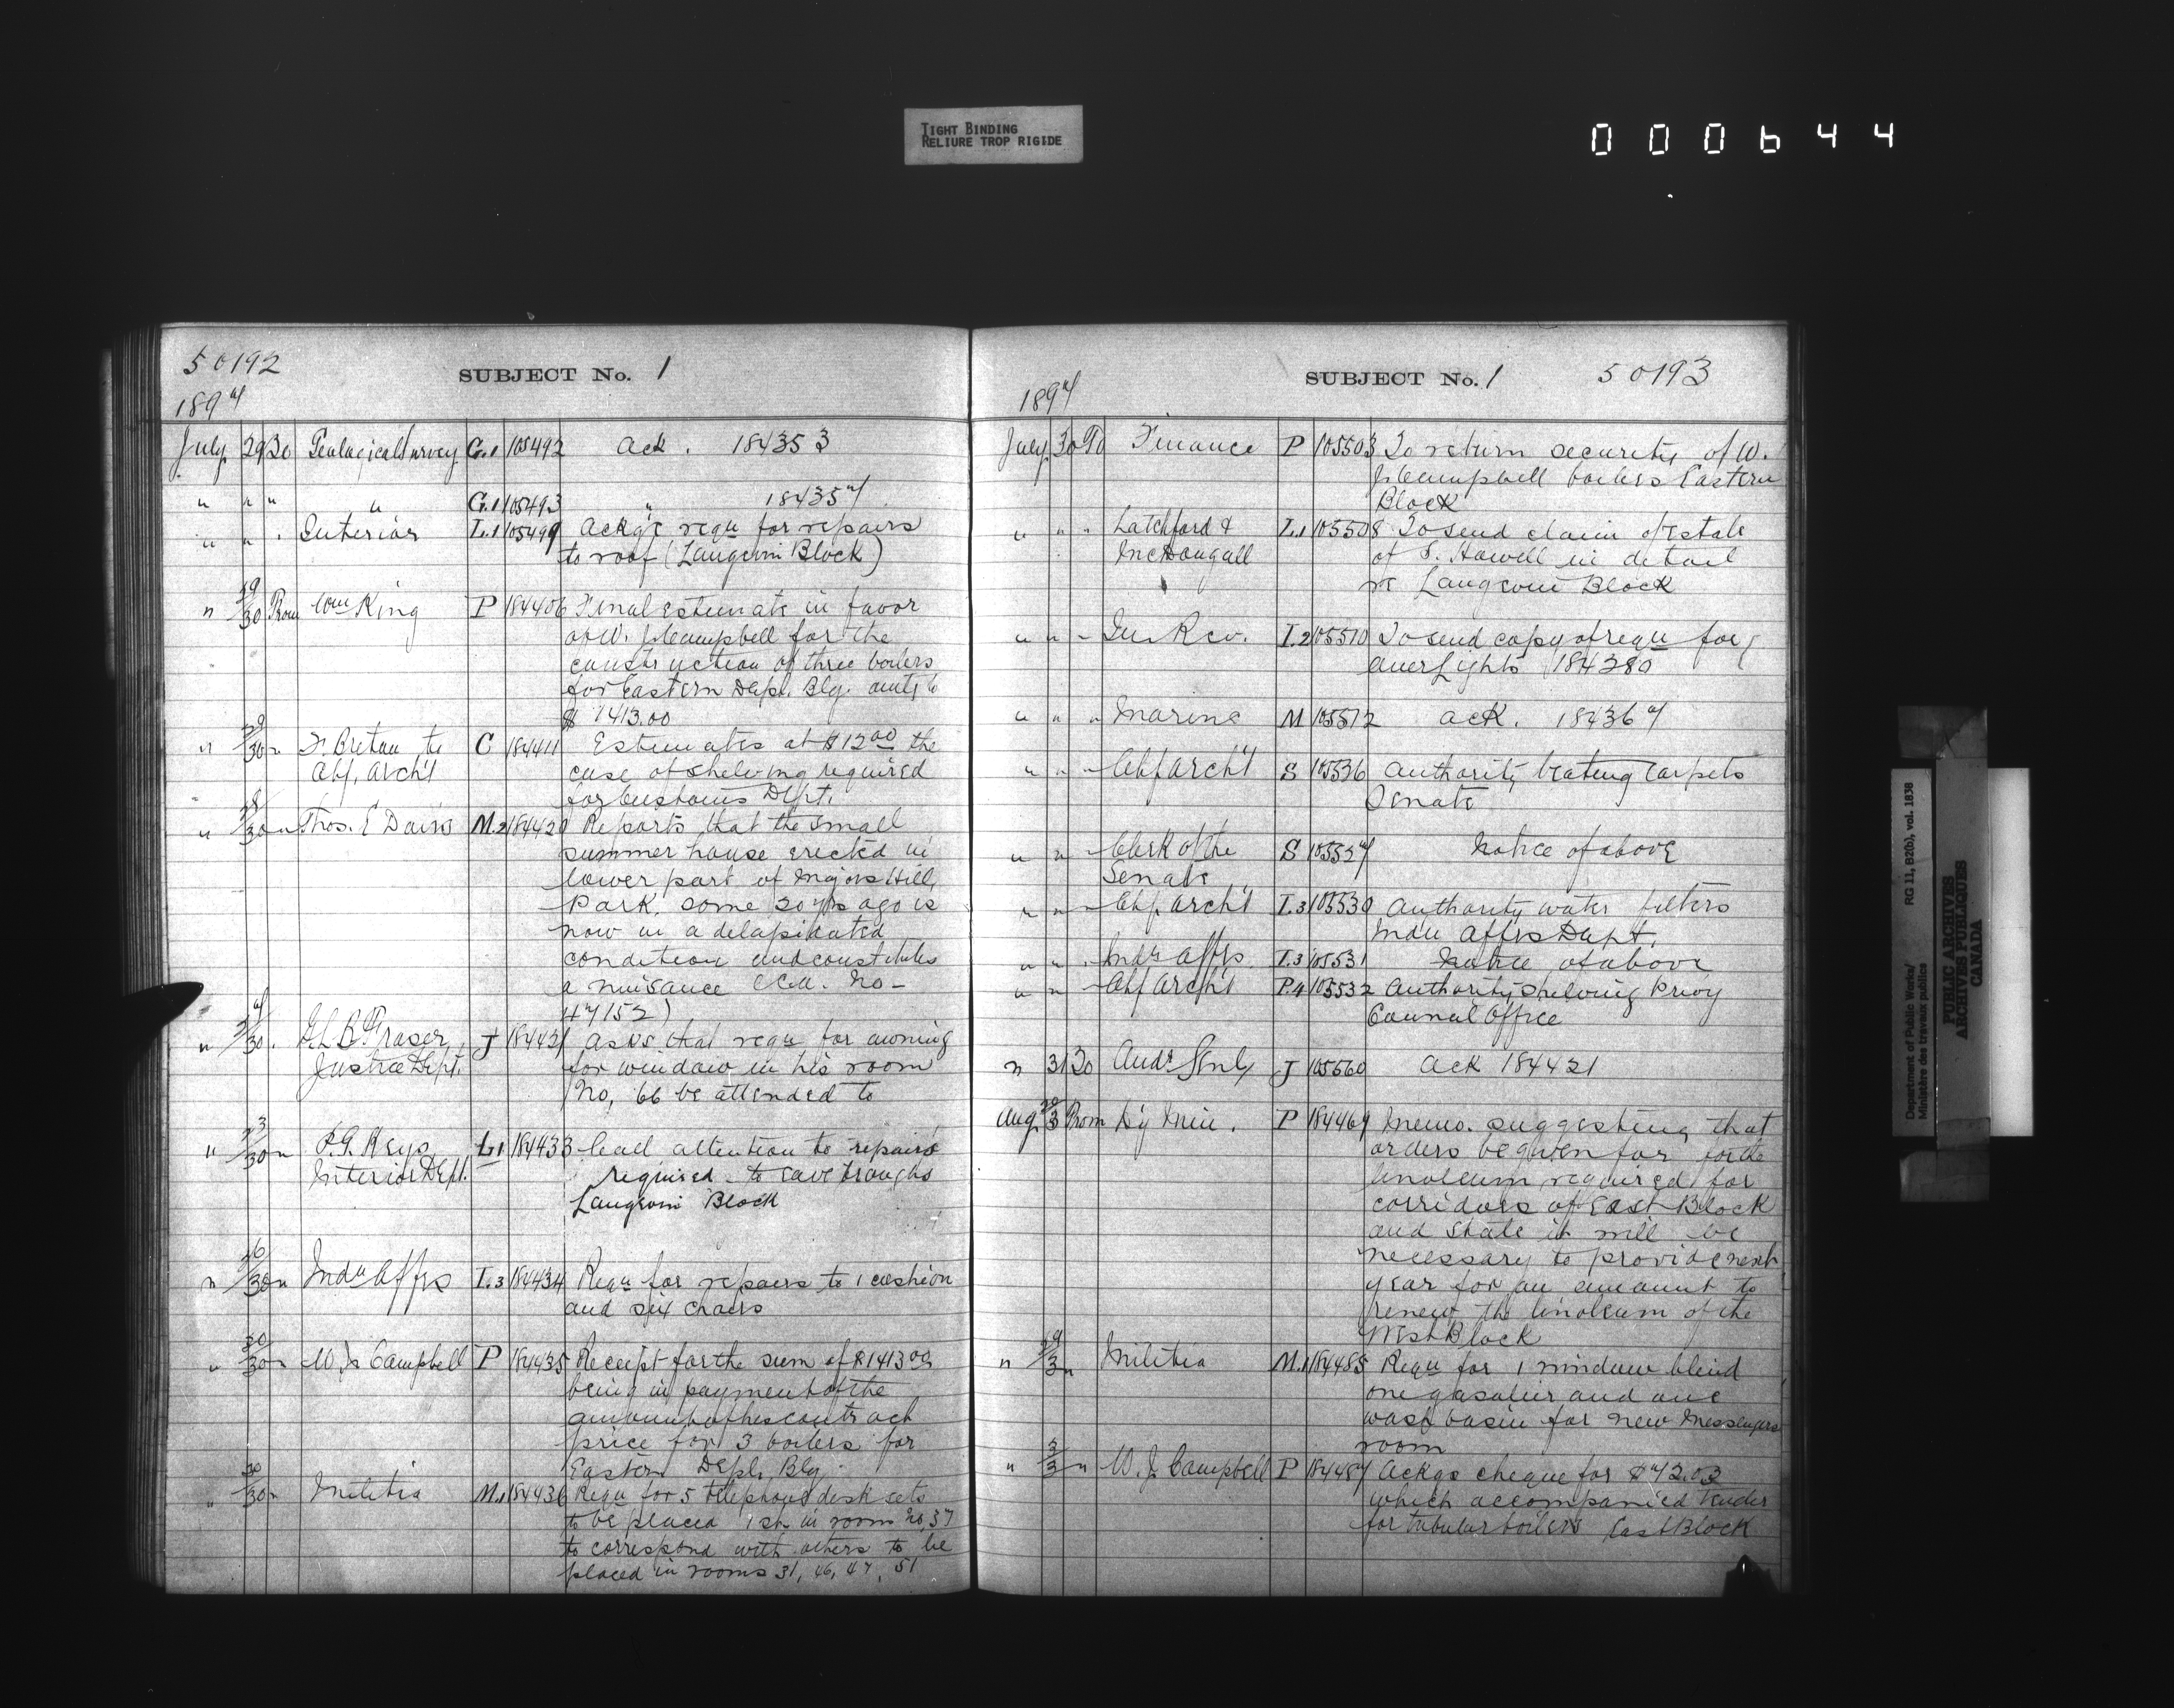 TIGHT BINDING
RELIURE TROP RIGIDE
000644
50192
SUBJECT No. 1
1897
July 29 30 Geological Survey G.1 105492 Ack. 184353
" " " " G.1 105493 " 184357
" " " Interior L.1 105499 Ackg'e reqn for repairs
to roof (Langevin Block)
" 29/30 From Wm King P 184406 Final estimate in favor
of W. J. Campbell for the
construction of three boilers
for Eastern Depl. Blg. amtg to
$ 1413.00
" 29/30 " Breton to C 184411 Estimates at $12.00 the
Chf. Arch't case of shelving required
for Customs Dept.
" 28/30 " Thos. E Davis M.2 184420 Reports that the small
summer house erected in
lower part of Majors Hill
Park, some 20 yrs ago is
now in a delapidated
condition and constitutes
a nuisance No-
47152)
" 30 Fraser, J 184421 Asks that reqn for awning
Justice Dept. for window in his room
No, 66 be attended to
" 23/30 " P.G. Keys L1 184433 Call attention to repairs
Interior Dept. required to eave troughs
Langevin Block
" 26/30 " Indn Affrs I.3 184434 Reqn for repairs to 1 cushion
and six chairs
" 30/30 " W. J. Campbell P 184435 Receipt for the sum of $1413.00
being in payment of the
amount of his contract
price for 3 boilers for
Eastern Depl. Blg.
" 30/30 " Militia M.1 184436 Reqn for 5 telephone desk sets
to be placed 1 st. in room No, 37
to correspond with others to be
placed in rooms 31, 46, 47, 51
SUBJECT No. 1
50193
1897
July 30 To Finance P 105503 To return security of W.
J. Campbell boilers Eastern
Block
" " " Latchford & L.1 105508 To send claim of estate
McDougall of S. Howell in detail
re Langevin Block
" " " In. Rev. I.2 105510 To send copy of reqn for
Auer Lights 184380
" " " Marine M 105512 Ack. 184367
" " " Chf Arch't S 105526 Authority beating carpets
Senate
" " " Clerk of the S 105527 Notice of above
Senate
" " " Chf Arch't I.3 105530 Authority water filters
Indn Affrs Dept.
" " " Indn Affrs. I.3 105531 Notice of above
" " " Chf Arch't P.4 105532 Authority shelving Privy
Council Office
" 31 30 Audr Genl J 105560 Ack 184421
Aug. 30/3 From Dy Min. P 184469 Memo. suggesting that
orders be given for for the
linoleum required for
corridors of East Block
and state it will be
necessary to provide next
year for an amount to
renew the linoleum of the
West Block
" 29/3 " Militia M.1 184485 Reqn for 1 window blind
one gasolier and one
wash basin for new Messengers
room
" 3/3 " W. J. Campbell P 184487 Ackgs cheque for $72.03
which accompanied tender
for tubular boilers East Block
Department of Public Works/ RG 11, B2(b), vol. 1838
Ministère des travaux publics
PUBLIC ARCHIVES
ARCHIVES PUBLIQUES
CANADA